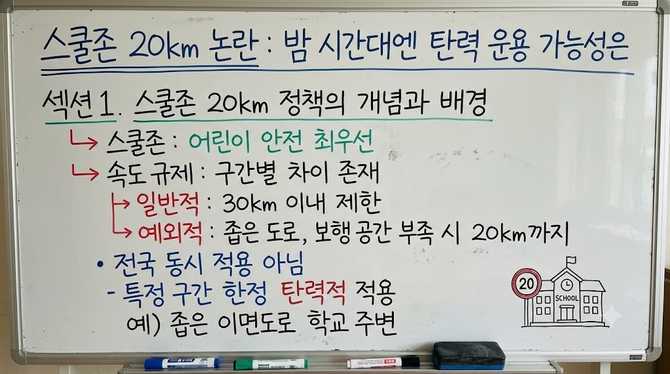 스쿨존 20km 논란 : 밤 시간대엔 탄력 운용 가능성은
섹션 1. 스쿨존 20km 정책의 개념과 배경
↳ 스쿨존 : 어린이 안전 최우선
↳ 속도 규제 : 구간별 차이 존재
↦ 일반적 : 30km 이내 제한
↳ 예외적 : 좁은 도로, 보행 공간 부족 시 20km까지
• 전국 동시 적용 아님
- 특정 구간 한정 탄력적 적용
예) 좁은 이면도로 학교 주변
20
SCHOOL